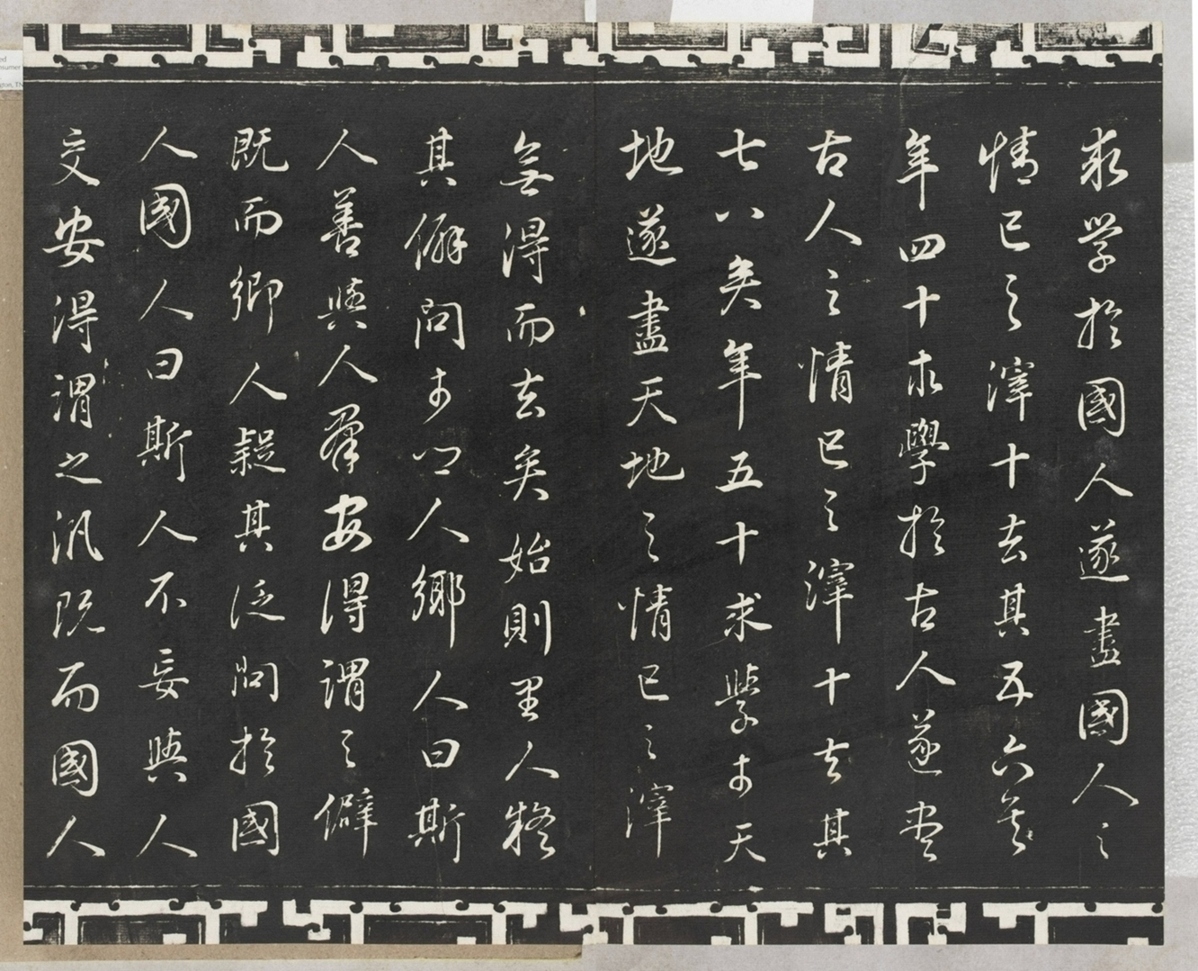 求學於國人遂盡國人之
情已之滓十去其五六矣
年四十求學於古人遂盡
古人之情已之滓十去其
七八矣年五十求學于天
地遂盡天地之情已之滓
無得而去矣始則里人疑
其僻問于鄉人鄉人曰斯
人善與人群安得謂之僻
既而鄉人疑其泛問於國
人國人曰斯人不妄與人
交安得謂之汎既而國人